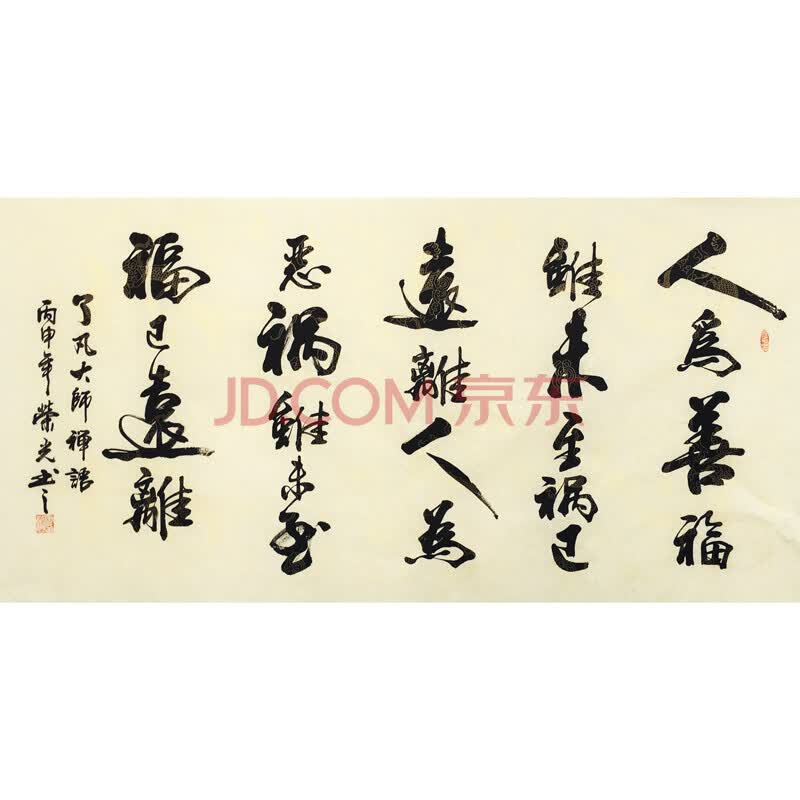 人為善福
雖未至祸已
遠離人為
惡祸雖未至
福已遠離
了凡大師禪語
丙申年榮光书之
JDCOM 京东